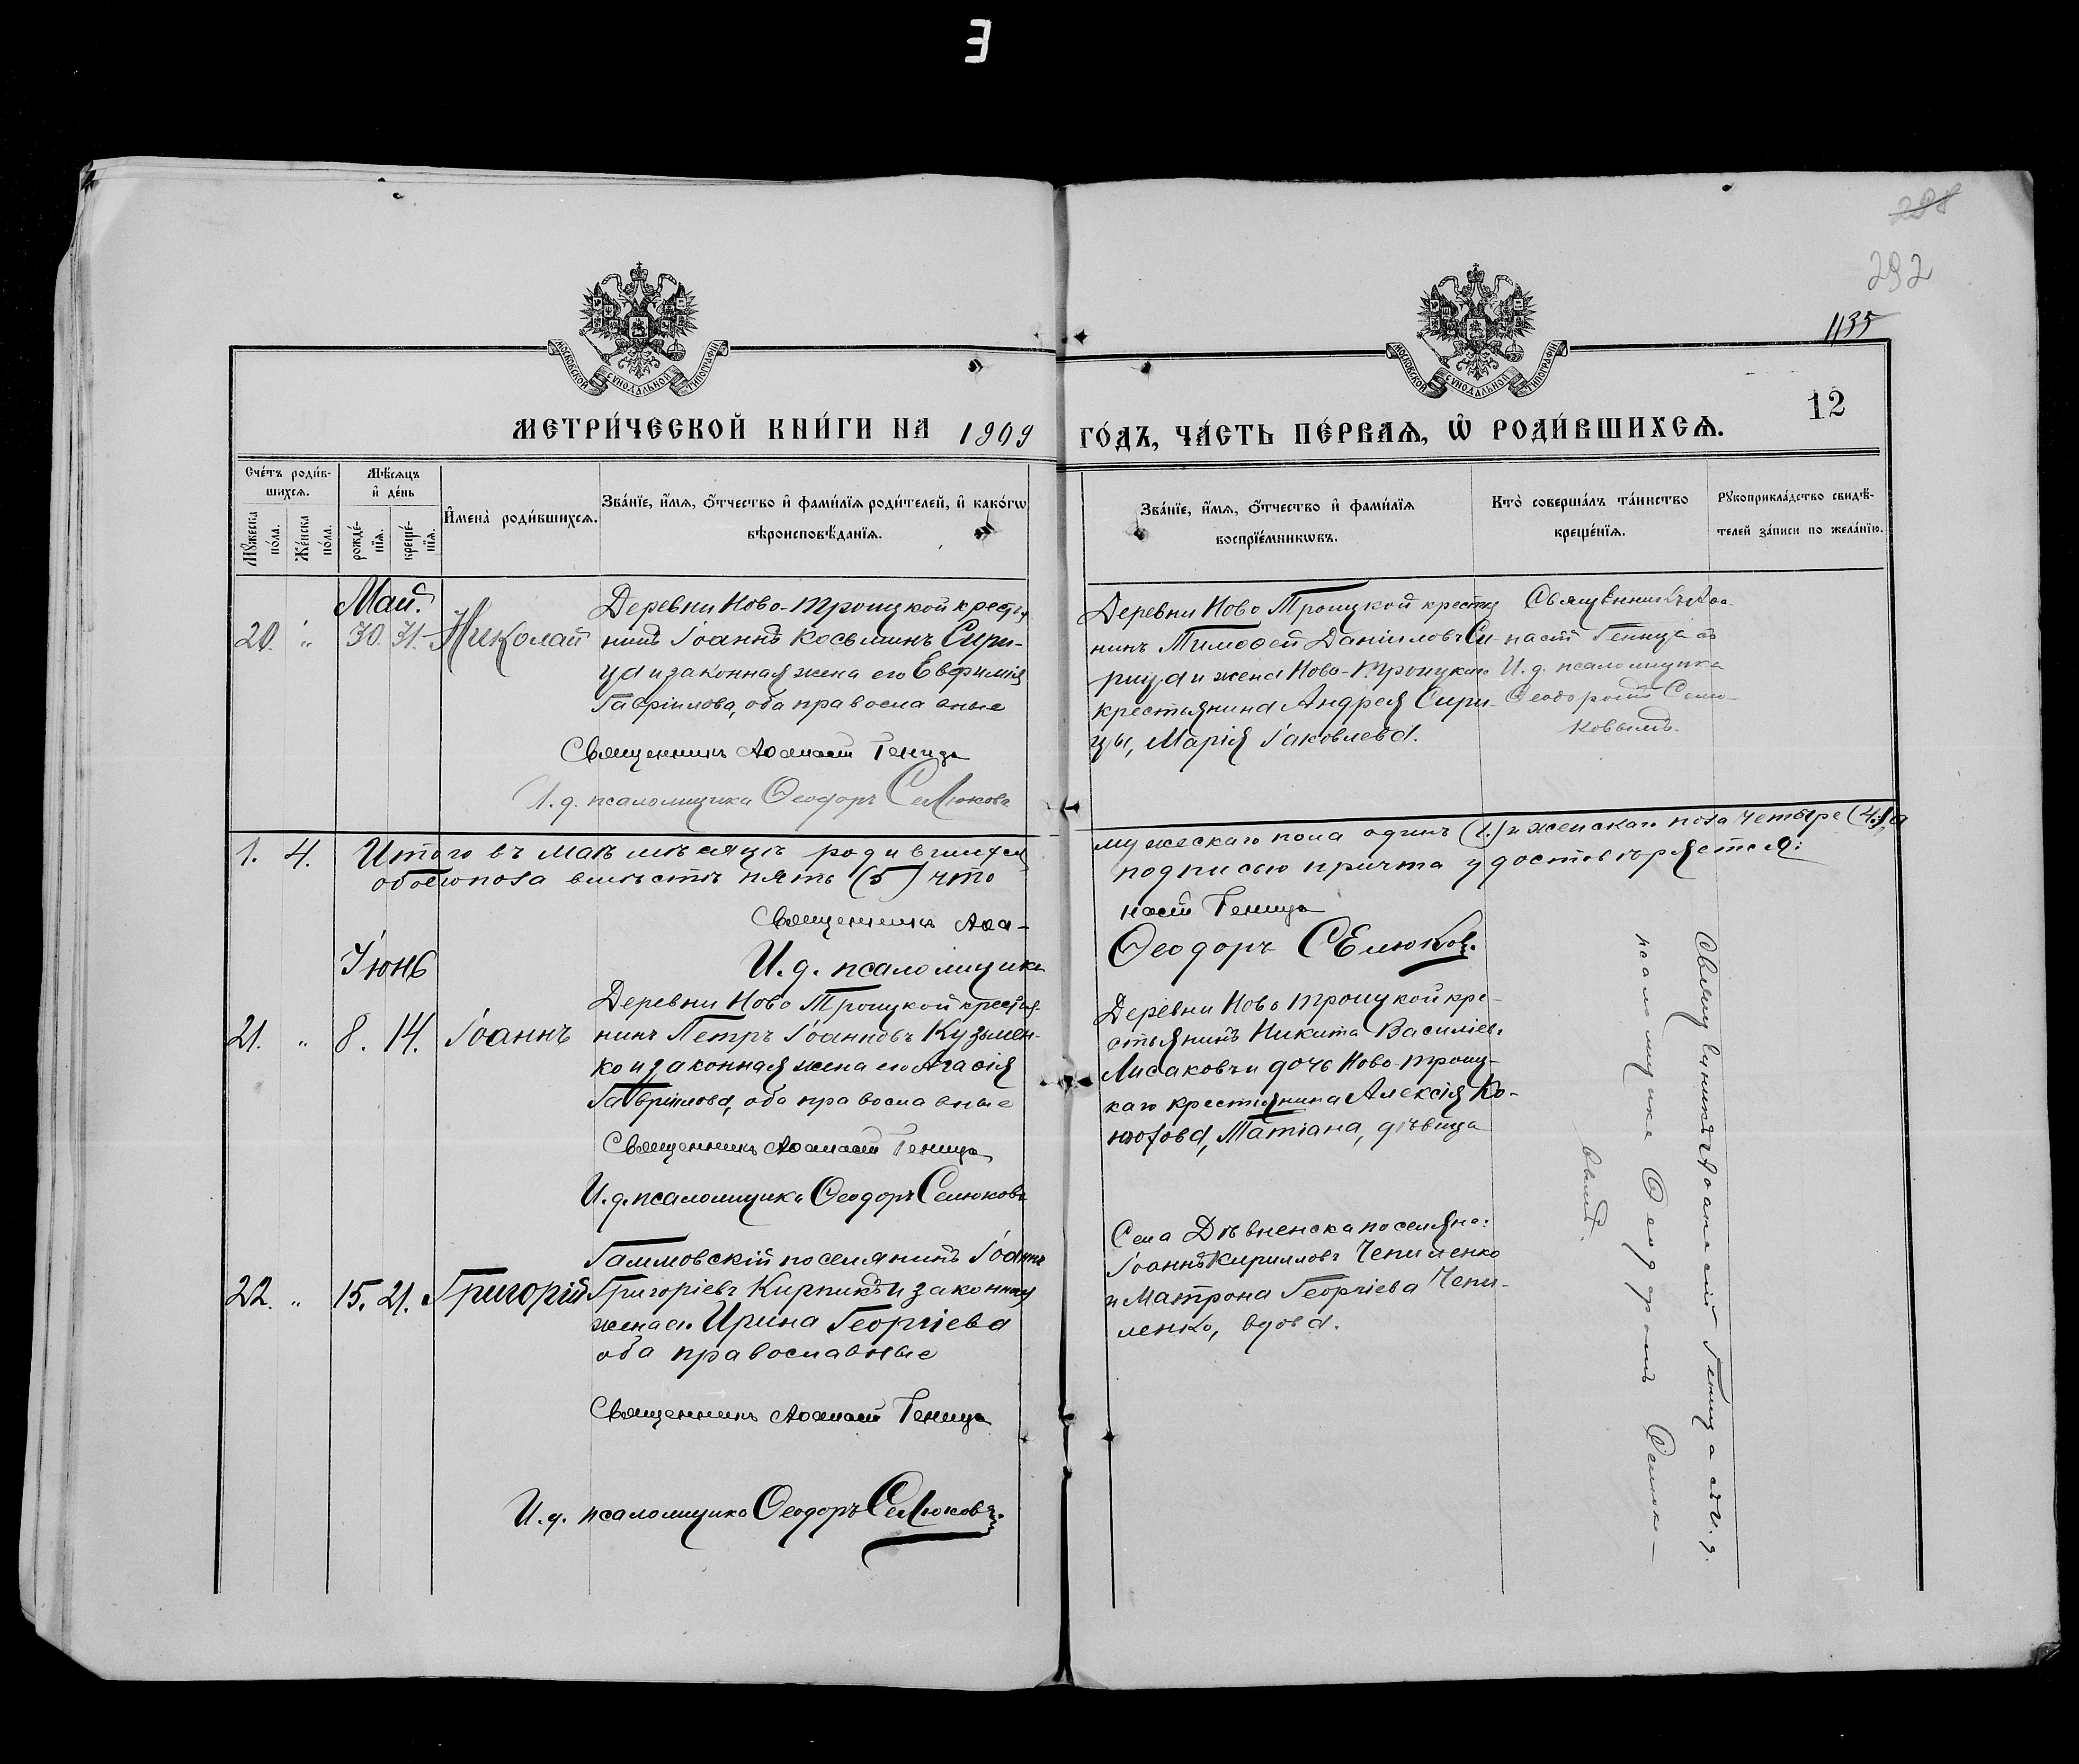 Е
288
292
1135
МОСКОВСКОЙ СѴНОДАЛЬНОЙ ТИПОГРАФІИ
МОСКОВСКОЙ СѴНОДАЛЬНОЙ ТИПОГРАФІИ
12
МЕТРИ́ЧЕСКОЙ КНИ́ГИ НА 1909
ГО́ДЪ, ЧА́СТЬ ПЕ́РВАѦ, Ѡ҆ РОДИ́ВШИХСѦ.
Сче́тъ роди́в-
шихсѧ.
Мꙋ́жеска
по́ла.
Же́нска
по́ла.
Мѣ́сѧцъ
и҆ де́нь
рожде́-
нїѧ.
креще́-
нїѧ.
И҆мена̀ роди́вшихсѧ.
Зва́нїе, и҆́мѧ, ѻ҆́тчество и҆ фами́лїѧ роди́телей, и҆ како́гѡ
вѣроисповѣ́данїѧ.
Зва́нїе, и҆́мѧ, ѻ҆́тчество и҆ фами́лїѧ
воспрїе́мникѡвъ.
Кто̀ соверша́лъ та́инство
креще́нїѧ.
Рꙋкоприкла́дство свидѣ́-
телей за́писи по жела́нїю.
Май.
20. " 30. 31. Николай
Деревни Ново-Троицкой кресть
нинъ Іоаннъ Косьминъ Сири-
ца и законная жена его Евфимія
Гавріилова, оба православные
Священникъ Аѳанасій Геница
И. д. псаломщика Ѳеодоръ Селюковъ
Деревни Ново Троицкой крестья
нинъ Тимоѳей Даніиловъ Си-
рица и жена Ново-Троицкаго
крестьянина Андрея Сири-
цы, Марія Іаковлева.
Священникъ Аѳа-
насій Геница съ
И. д. псаломщика
Ѳеодоромъ Селю-
ковымъ.
1. 4. Итого въ маѣ мѣсяцѣ родившихся
обоего пола вмѣстѣ пять (5) что
мужескаго пола одинъ (1.) и женскаго пола четыре (4.), а
подписью причта удостовѣряется:
Священникъ Аѳа-
насій Геница
И. д. псаломщика
Ѳеодоръ Селюковъ.
Іюнь
21. " 8. 14. Іоаннъ
Деревни Ново Троицкой крестья-
нинъ Петръ Іоанновъ Кузьмен-
ко и законная жена его Агаѳія
Гавріилова, оба православные
Священникъ Аѳанасій Геница
И. д. псаломщика Ѳеодоръ Селюковъ
Деревни Ново Троицкой кре-
стьянинъ Никита Василіев.
Лисаковъ и дочь Ново-Троиц-
каго крестьянина Алексія Ко-
Татіана, дѣвица
22. " 15. 21. Григорій
Гаммовскій поселянинъ Іоаннъ
Григоріевъ Кирпикъ и законная
жена е. Ирина Георгіева
оба православные
Священникъ Аѳанасій Геница
И. д. псаломщика Ѳеодоръ Селюковъ.
Села Дѣвненска поселяне:
Іоаннъ Кирилловъ Чепиленко
и Матрона Георгіева Чепи-
ленко, вдова.
Священникъ Аѳанасій Геница съ И. д.
псаломщика Ѳеодоромъ Селюко-
вымъ.